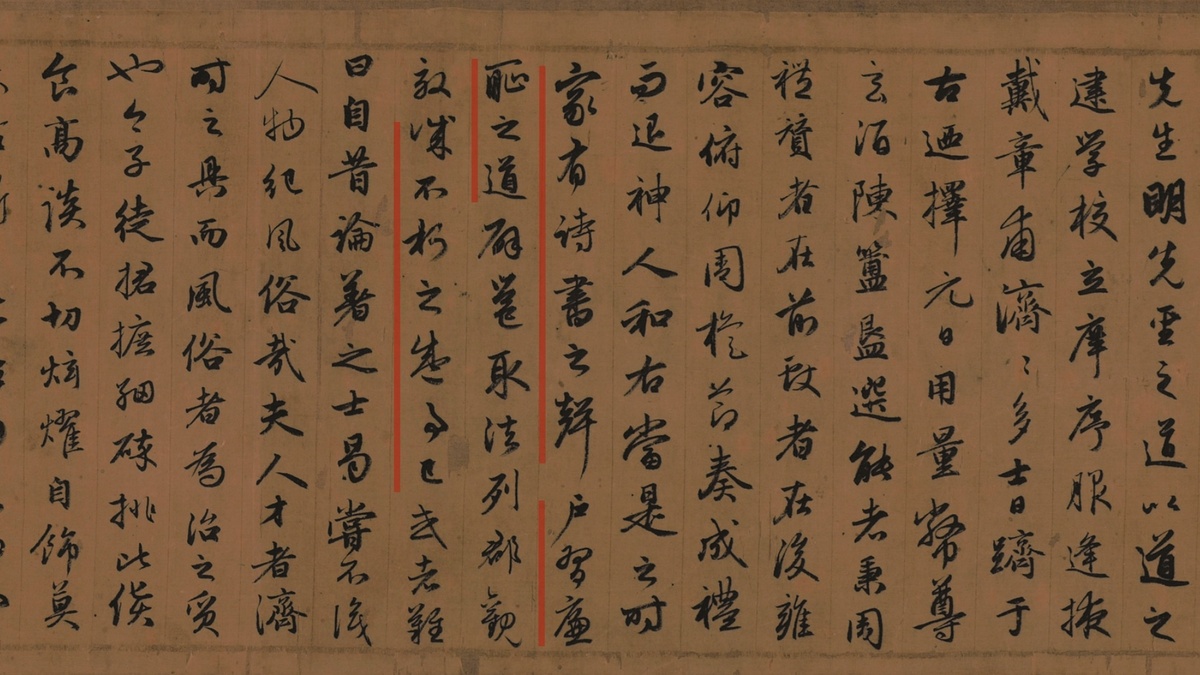 先生明先聖之道以道之
建学校立庠序服逢掖
戴章甫濟〻多士日躋于
古廼擇元日用量幣尊
玄酒陳簠簋選能者秉周
禮賛者在前致者在後雍
容俯仰周旋節奏成禮
而退神人和右當是之时
家有诗書之聲户習廉
耻之道辟邕取法列郡觀
教誠不朽之盛事已或者難
曰自昔論著之士曷嘗不識
人物紀風俗哉夫人才者濟
时之具而風俗者為治之質
也今子徒捃摭細碎排比
食高談不切炫燿自飾莫